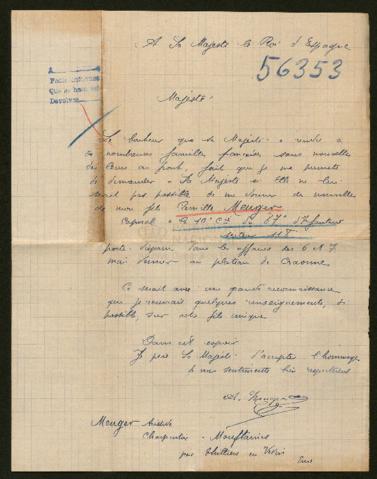 A Sa Majesté le Roi d'Espagne
56353
Majesté
Le bonheur que Sa Majesté a rendu à
de nombreuses familles françaises sans nouvelles
des leurs au front, fait que je me permets
de demander à Sa Majesté si Elle ne lui
serait pas possible de me donner des nouvelles
de mon fils Camille Meuger
Caporal à la 10e Cie du 67e d'Infanterie
secteur
porté disparu dans les affaires des 6 & 7
mai dernier au plateau de Craonne
Ce serait avec une grande reconnaissance
que je recevrais quelques renseignements, si
possible, sur mon fils unique
Dans cet espoir
Je prie Sa Majesté d'accepter l'hommage
de mes sentiments bien respectueux
A. Meuger
Meuger Aristide
Charpentier à
par en